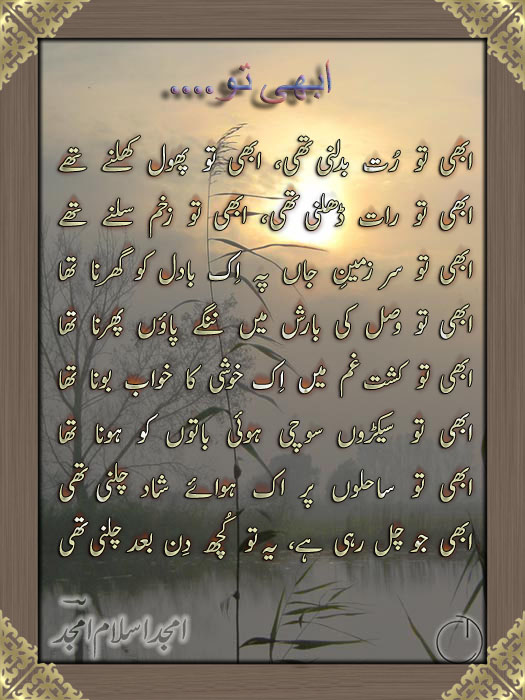 ابھی تو....
ابھی تو رُت بدلنی تھی، ابھی تو پھول کھلنے تھے
ابھی تو رات ڈھلنی تھی، ابھی تو زخم سلنے تھے
ابھی تو سر زمینِ جاں پہ اِک بادل کو گھرنا تھا
ابھی تو وصل کی بارش میں ننگے پاؤں پھرنا تھا
ابھی تو کشت غم میں اِک خوشی کا خواب بونا تھا
ابھی تو سیکڑوں سوچی ہوئی باتوں کو ہونا تھا
ابھی تو ساحلوں پر اک ہوائے شاد چلنی تھی
ابھی جو چل رہی ہے، یہ تو کُچھ دِن بعد چلنی تھی
امجد اسلام امجدؔ